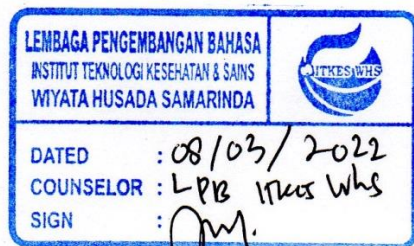 LEMBAGA PENGEMBANGAN BAHASA
INSTITUT TEKNOLOGI KESEHATAN & SAINS
WIYATA HUSADA SAMARINDA
ITKES WHS
DATED : 08/03/2022
COUNSELOR : LPB ITKES WHS
SIGN :